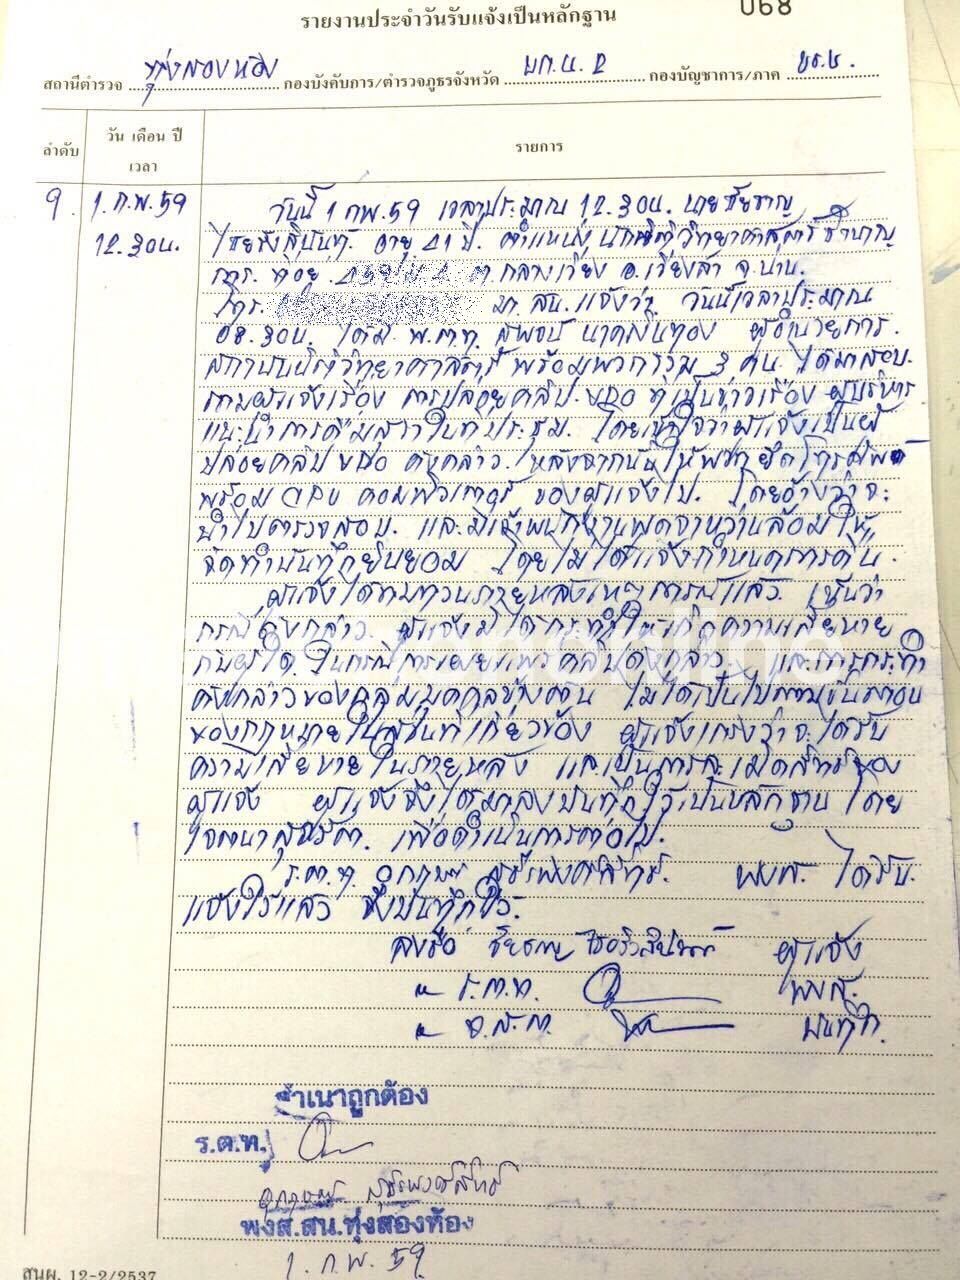 068
รายงานประจำวันรับแจ้งเป็นหลักฐาน
สถานีตำรวจ ทุ่งสองห้อง กองบังคับการ/ตำรวจภูธรจังหวัด บก.น.2 กองบัญชาการ/ภาค บช.น.
ลำดับ วัน เดือน ปี เวลา รายการ
9. 1 ก.พ. 59 วันนี้ 1 กพ. 59 เวลาประมาณ 12.30น. นายชัยชาญ
12.30น. อายุ 41 ปี. ตำแหน่ง นักนิติวิทยาศาสตร์ชำนาญ
การ. ที่อยู่ ต.กลางเวียง อ.เวียงสา จ.น่าน.
โทร. มา สน. แจ้งว่า วันนี้เวลาประมาณ
08.30น. ได้มี พ.ต.ท. ผู้อำนวยการ
สถาบันนิติวิทยาศาสตร์ พร้อมพวกรวม 3 คน ได้มาสอบ
ถามผู้แจ้งเรื่อง การปล่อยคลิป VDO ที่เป็นข่าวเรื่อง ผู้บริหาร
แนะนำการดื่มสุราในที่ประชุม. โดยเข้าใจว่าผู้แจ้งเป็นผู้
ปล่อยคลิป VDO ดังกล่าว. หลังจากนั้นให้พวกยึดโทรศัพท์
พร้อม CPU คอมพิวเตอร์ ของผู้แจ้งไป. โดยอ้างว่าจะ
นำไปตรวจสอบ. และมีเจ้าพนักงานพูดจาหว่านล้อมให้
จัดทำบันทึกยินยอม โดยไม่ได้แจ้งกำหนดการคืน.
ผู้แจ้งได้ทบทวนภายหลังเหตุการณ์แล้ว. เห็นว่า
กรณีดังกล่าว. ผู้แจ้งมิได้กระทำให้เกิดความเสียหาย
กับผู้ใด ในกรณีการเผยแพร่คลิปดังกล่าว. และการกระทำ
ดังกล่าวของกลุ่มบุคคลข้างต้น ไม่ได้เป็นไปตามขั้นตอน
ของกฎหมายในส่วนที่เกี่ยวข้อง ผู้แจ้งเกรงว่าจะได้รับ
ความเสียหายในภายหลัง และเป็นการละเมิดสิทธิของ
ผู้แจ้ง ผู้แจ้งจึงได้มาลงบันทึกไว้เป็นหลักฐาน โดย
เจตนาสุจริต. เพื่อดำเนินการต่อไป.
ร.ต.ท. พงส. ได้รับ
แจ้งไว้แล้ว จึงบันทึกไว้.
ลงชื่อ ชัยชาญ ผู้แจ้ง
" ร.ต.ท. พงส.
" จ.ส.ต. บันทึก
สำเนาถูกต้อง
ร.ต.ท.
พงส.สน.ทุ่งสองห้อง
1 ก.พ. 59
สนผ. 12-2/2537